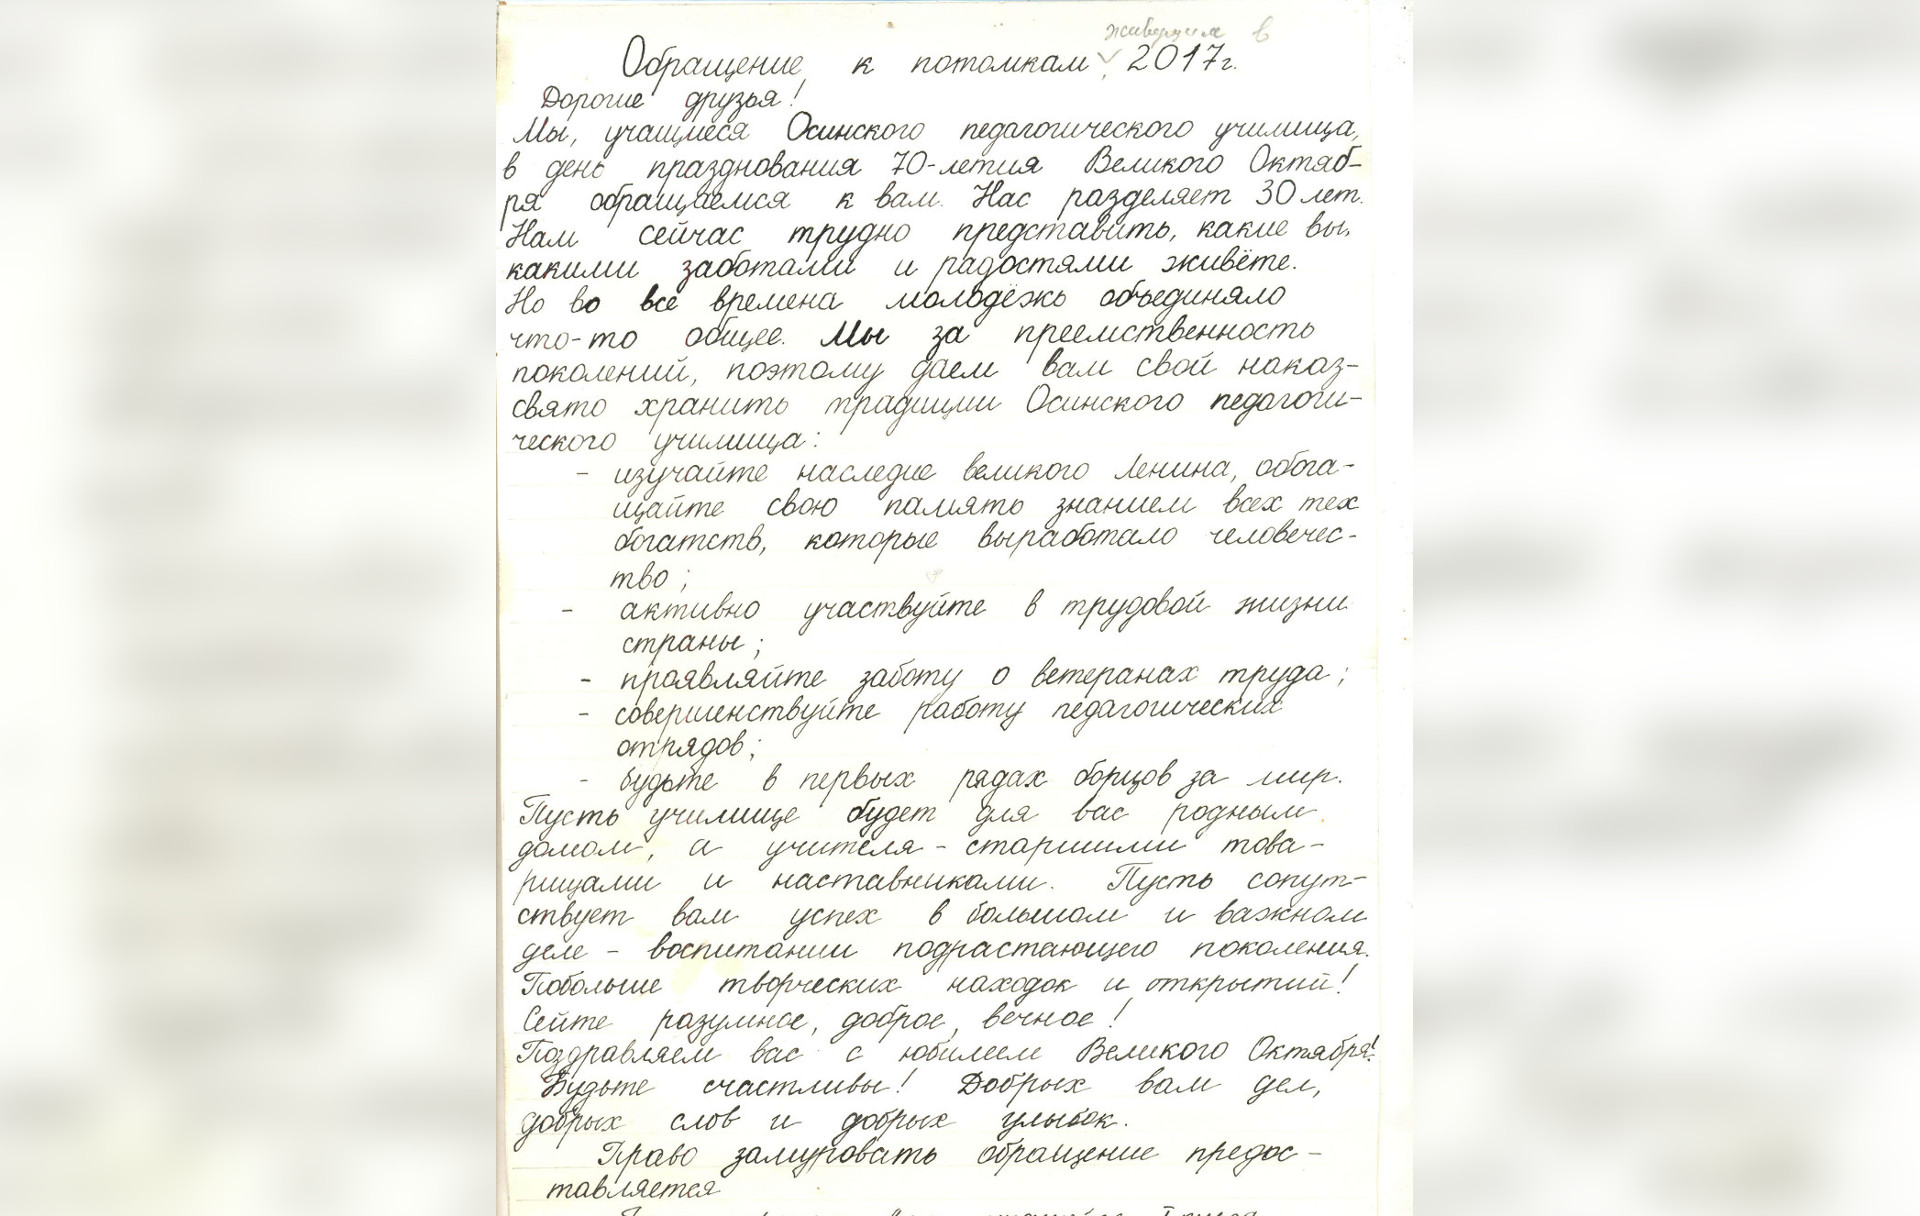 живущим в
Обращение к потомкам 2017г.
Дорогие друзья!
Мы, учащиеся Осинского педагогического училища,
в день празднования 70-летия Великого Октяб-
ря обращаемся к вам. Нас разделяет 30 лет.
Нам сейчас трудно представить, какие вы,
какими заботами и радостями живёте.
Но во все времена молодёжь объединяло
что-то общее. Мы за преемственность
поколений, поэтому даем вам свой наказ-
свято хранить традиции Осинского педагоги-
ческого училища:
- изучайте наследие великого Ленина, обога-
щайте свою память знанием всех тех
богатств, которые выработало человечес-
тво;
- активно участвуйте в трудовой жизни
страны;
- проявляйте заботу о ветеранах труда;
- совершенствуйте работу педагогических
отрядов;
- будьте в первых рядах борцов за мир.
Пусть училище будет для вас родным
домом, а учителя - старшими това-
рищами и наставниками. Пусть сопут-
ствует вам успех в большом и важном
деле - воспитании подрастающего поколения.
Побольше творческих находок и открытий!
Сейте разумное, доброе, вечное!
Поздравляем вас с юбилеем Великого Октября!
Будьте счастливы! Добрых вам дел,
добрых слов и добрых улыбок.
Право замуровать обращение предос-
тавляется